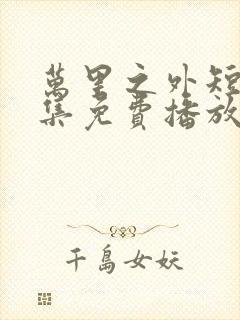 萬里之外短
集免費播放
千島女妖